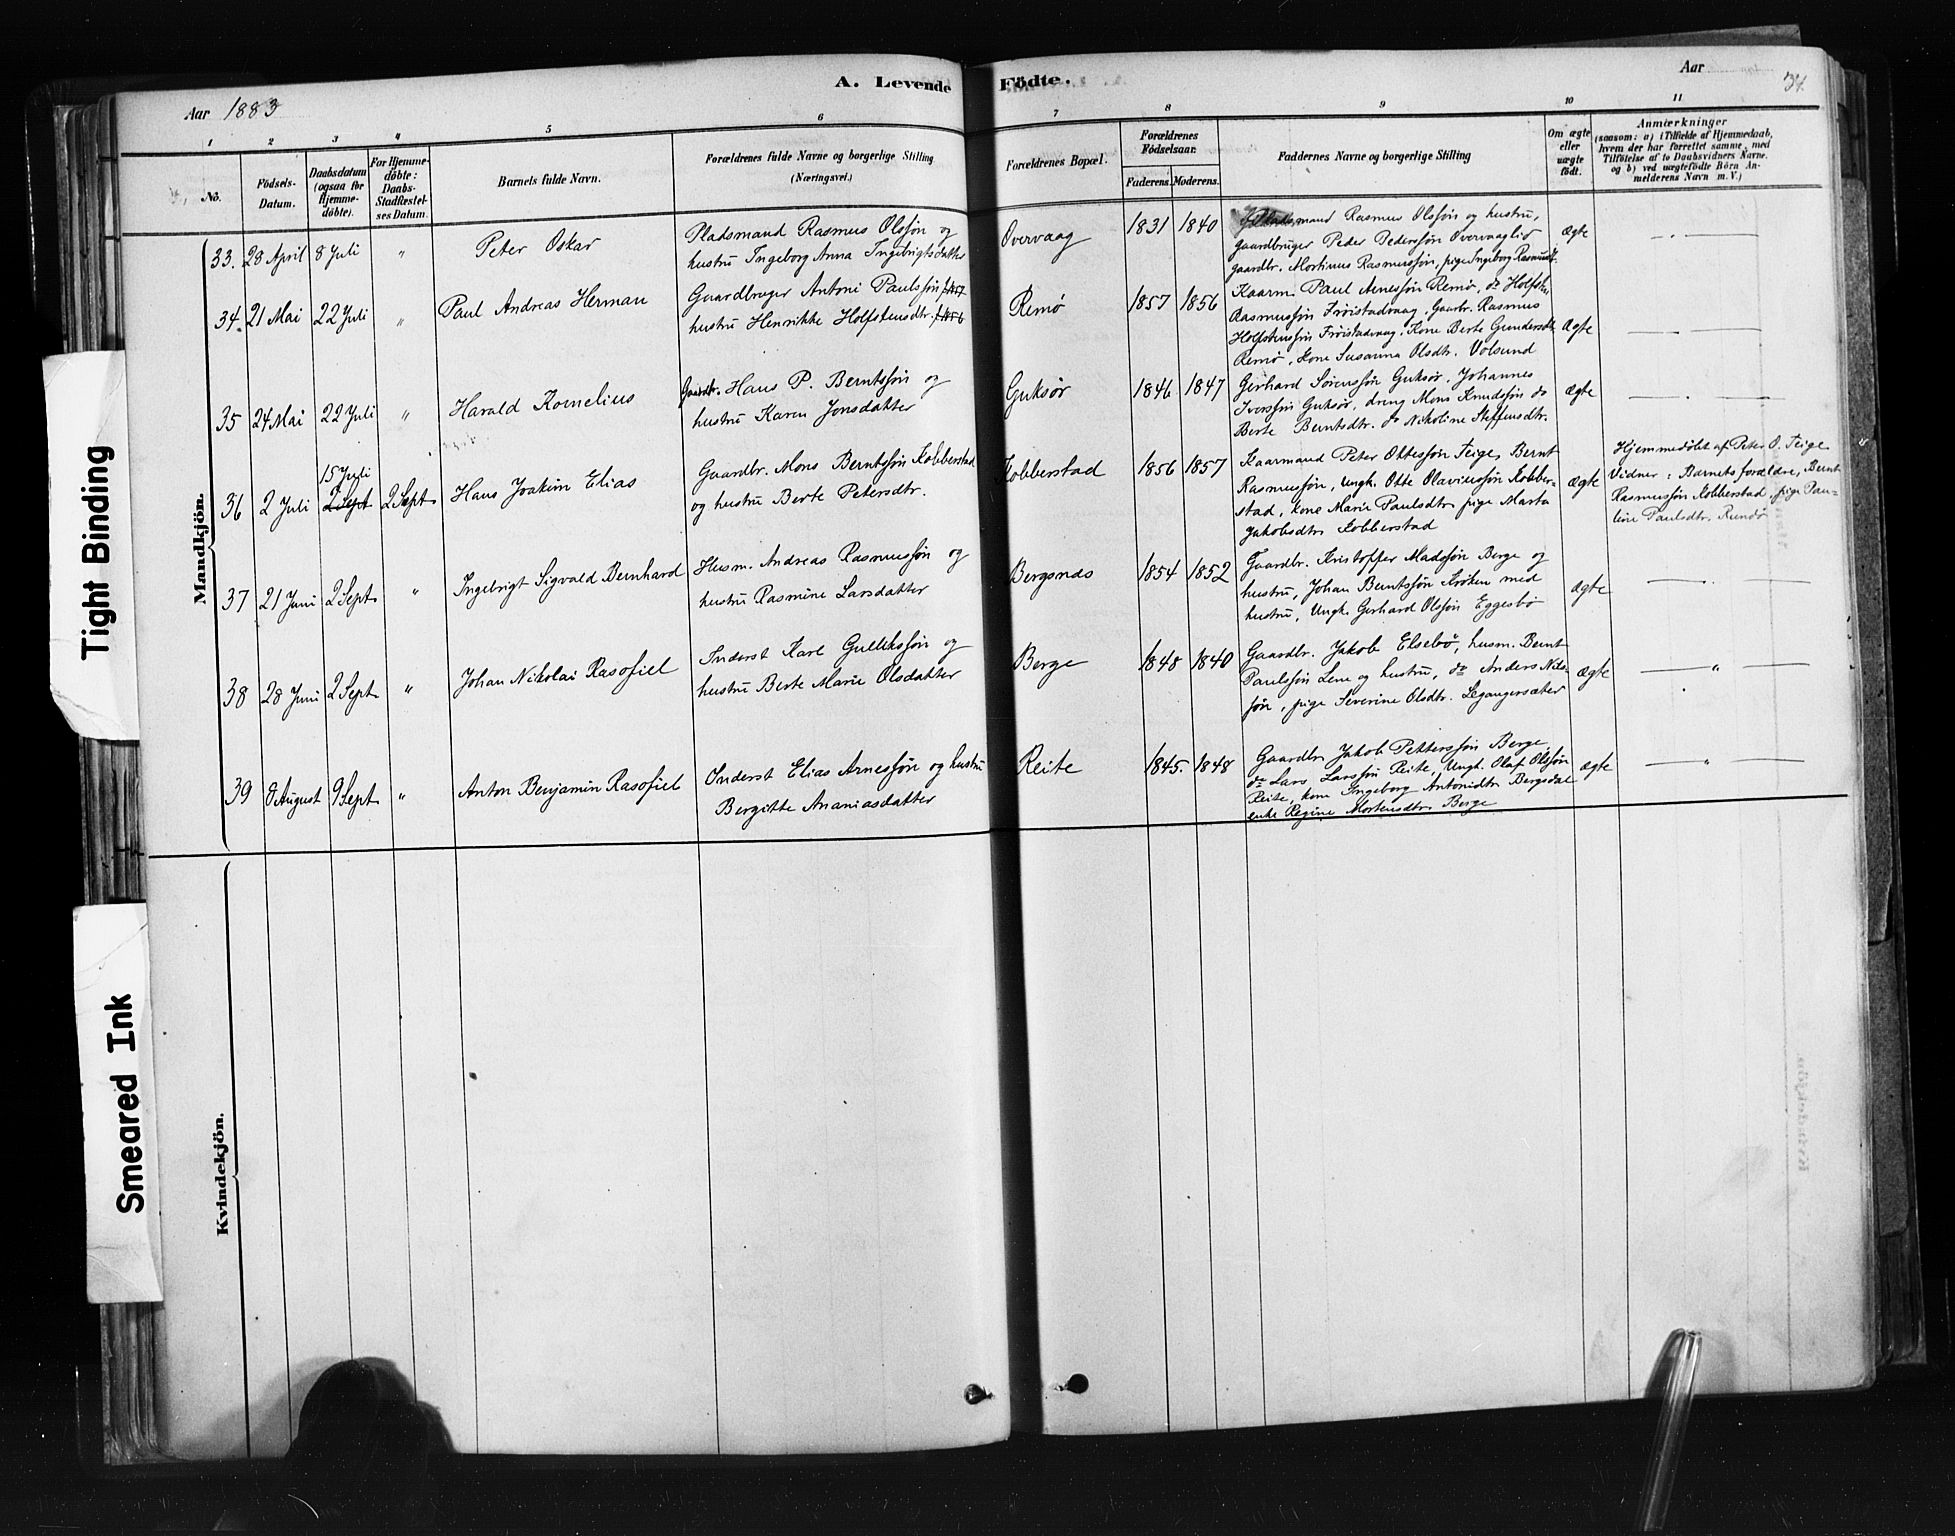 Tight Binding
Smeared Ink
Aar 1883
A. Levende Födte.
Aar
34.
1 2 3 4 5 6 7 8 9 10 11
No.
Födsels-Datum.
Daabsdatum (ogsaa for Hjemme-döbte).
For Hjemme-döbte: Daabs-Stadfæstel-ses Datum.
Barnets fulde Navn.
Forældrenes fulde Navne og borgerlige Stilling (Næringsvei.)
Forældrenes Bopæl.
Forældrenes Födselsaar.
Faderens. Moderens.
Faddernes Navne og borgerlige Stilling
Om ægte eller uægte födt.
Anmærkninger
(saasom: a) i Tilfælde af Hjemmedaab,
hvem der har forrettet samme, med
Tilföielse af to Daabsvidners Navne.
og b) ved uægtefödte Börn An-
melderens Navn m. V.)
Mandkjön.
33. 28 April 8 Juli " Peter Oskar
Pladsmand Rasmus Olssøn og
hustru Ingeborg Anna Ingebrigtsdatter
Overvaag 1831 1840
Pladsmand Rasmus Olssøn og hustru,
gaardbruger Peder Pederssøn Overvaaglid
gaardbr. Martinus Rasmussøn, pige Ingeborg Rasmusdt.
ægte
34. 21 Mai 22 Juli " Paul Andreas Herman
Gaardbruger Antoni Paulssøn f. 1857
hustru Henrikke Holfstensdtr. f. 1856
Remø 1857 1856
Kaarm. Paul Arnessøn Remø, do Holfst.
Rasmussøn Frøistadvaag, Gaardbr. Rasmus
Holfstenssøn Frøistadvaag, Kone Berte Gundersdt.
Remø, Kone Susanna Olsdtr. Volsund
ægte
35 24 Mai 22 Juli " Harald Kornelius
Gaardbr. Hans P. Berntssøn og
hustru Karen Jonsdatter
Guksør 1846 1847
Gerhard Sørenssøn Guksør, Johannes
Iverssøn Guksør, dreng Mons Knudssøn do
Berte Berntsdtr. do Nikoline Steffensdtr.
ægte
36 2 Juli 15 Juli 2 Sept 2 Sept. Hans Joakim Elias
Gaardbr. Mons Berntssøn Kobberstad
og hustru Berte Petersdtr.
Kobberstad 1856 1857
Kaarmand Peter Ottessøn Teige, Bernt
Rasmussøn, Ungk. Otte Olaviussøn Kobber-
stad, kone Marie Paulsdtr. pige Marta
Jakobsdtr. Kobberstad
ægte
Hjemmedøbt af Peter O. Teige
Vidner: Barnets forældre, Bernt
Rasmussøn Kobberstad, pige Pau-
line Paulsdtr. Rundø
37 21 Juni 2 Sept. " Ingebrigt Sigvald Bernhard
Husm. Andreas Rasmussøn og
hustru Rasmine Larsdatter
Bergsnes 1854 1852
Gaardbr. Kristoffer Madssøn Berge og
hustru, Johan Berntssøn Krøken med
hustru, Ungk. Gerhard Olssøn Eggesbø
ægte
38 28 Juni 2 Sept. " Johan Nikolai Rasofiel
Inderst Karl Gulliksson og
hustru Berte Marie Olsdatter
Berge 1848 1840
Gaardbr. Jakob Elsebø, husm. Bernt
Paulssøn Lene og hustru, do Anders Nils-
søn, pige Severine Olsdtr. Leganger­sæter
ægte
39 8 August 9 Sept. " Anton Benjamin Rasofiel
Inderst Elias Arnessøn og hustru
Bergitte Ananiasdatter
Reite 1845. 1848
Gaardbr. Jakob Petterssøn Berge,
do Lars Larssøn Reite, Ungk. Olaf Olssøn
Reite, kone Ingeborg Antonidtr. Bergsdal
enke Regine Mortensdtr. Berge
ægte
Kvindekjön.